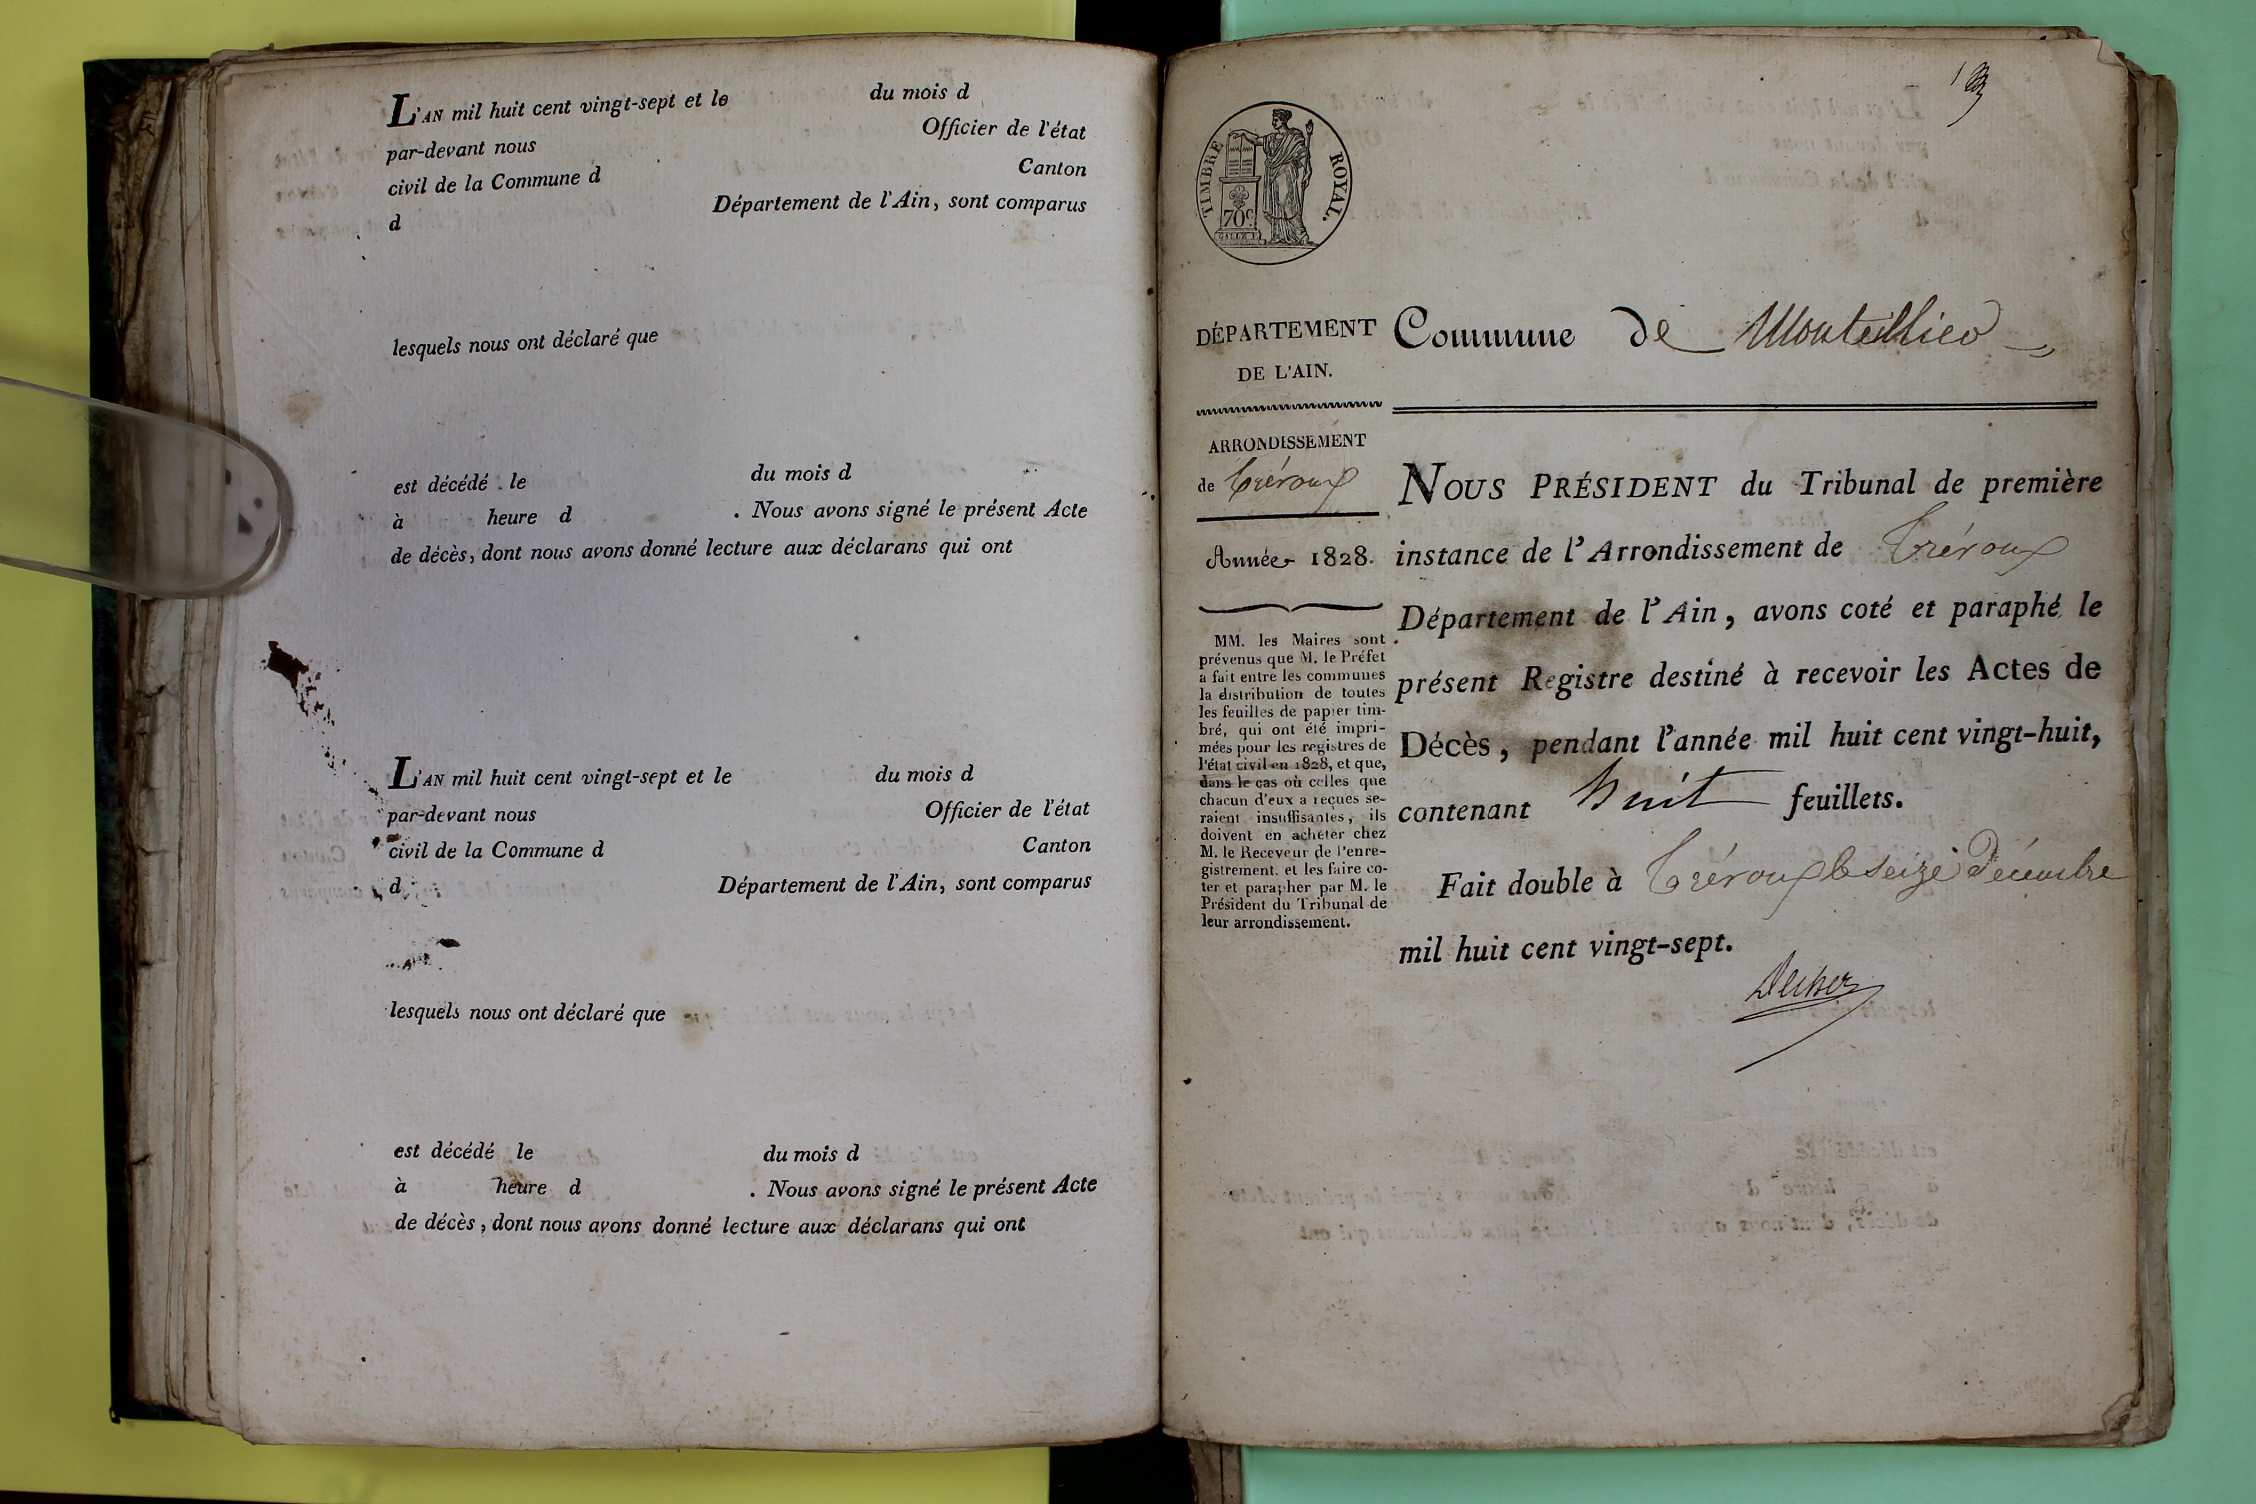 L'AN mil huit cent vingt-sept et le du mois d
par-devant nous Officier de l'état
civil de la Commune d Canton
d Département de l'Ain, sont comparus
lesquels nous ont déclaré que
est décédé le du mois d
à heure d . Nous avons signé le présent Acte
de décès, dont nous avons donné lecture aux déclarans qui ont
L'AN mil huit cent vingt-sept et le du mois d
par-devant nous Officier de l'état
civil de la Commune d Canton
d Département de l'Ain, sont comparus
lesquels nous ont déclaré que
est décédé le du mois d
à heure d . Nous avons signé le présent Acte
de décès, dont nous avons donné lecture aux déclarans qui ont
1
TIMBRE ROYAL.
70c.
DÉPARTEMENT
DE L'AIN.
ARRONDISSEMENT
de Trévoux
Année 1828.
MM. les Maires sont
prévenus que M. le Préfet
a fait entre les communes
la distribution de toutes
les feuilles de papier tim-
bré, qui ont été impri-
mées pour les registres de
l'état civil en 1828, et que,
dans le cas où celles que
chacun d'eux a reçues se-
raient insuffisantes, ils
doivent en acheter chez
M. le Receveur de l'enre-
gistrement. et les faire co-
ter et parapher par M. le
Président du Tribunal de
leur arrondissement.
Commune de Monteillier
NOUS PRÉSIDENT du Tribunal de première
instance de l'Arrondissement de Trévoux
Département de l'Ain, avons coté et paraphé le
présent Registre destiné à recevoir les Actes de
Décès, pendant l'année mil huit cent vingt-huit,
contenant huit feuillets.
Fait double à Trévoux le seize Décembre
mil huit cent vingt-sept.